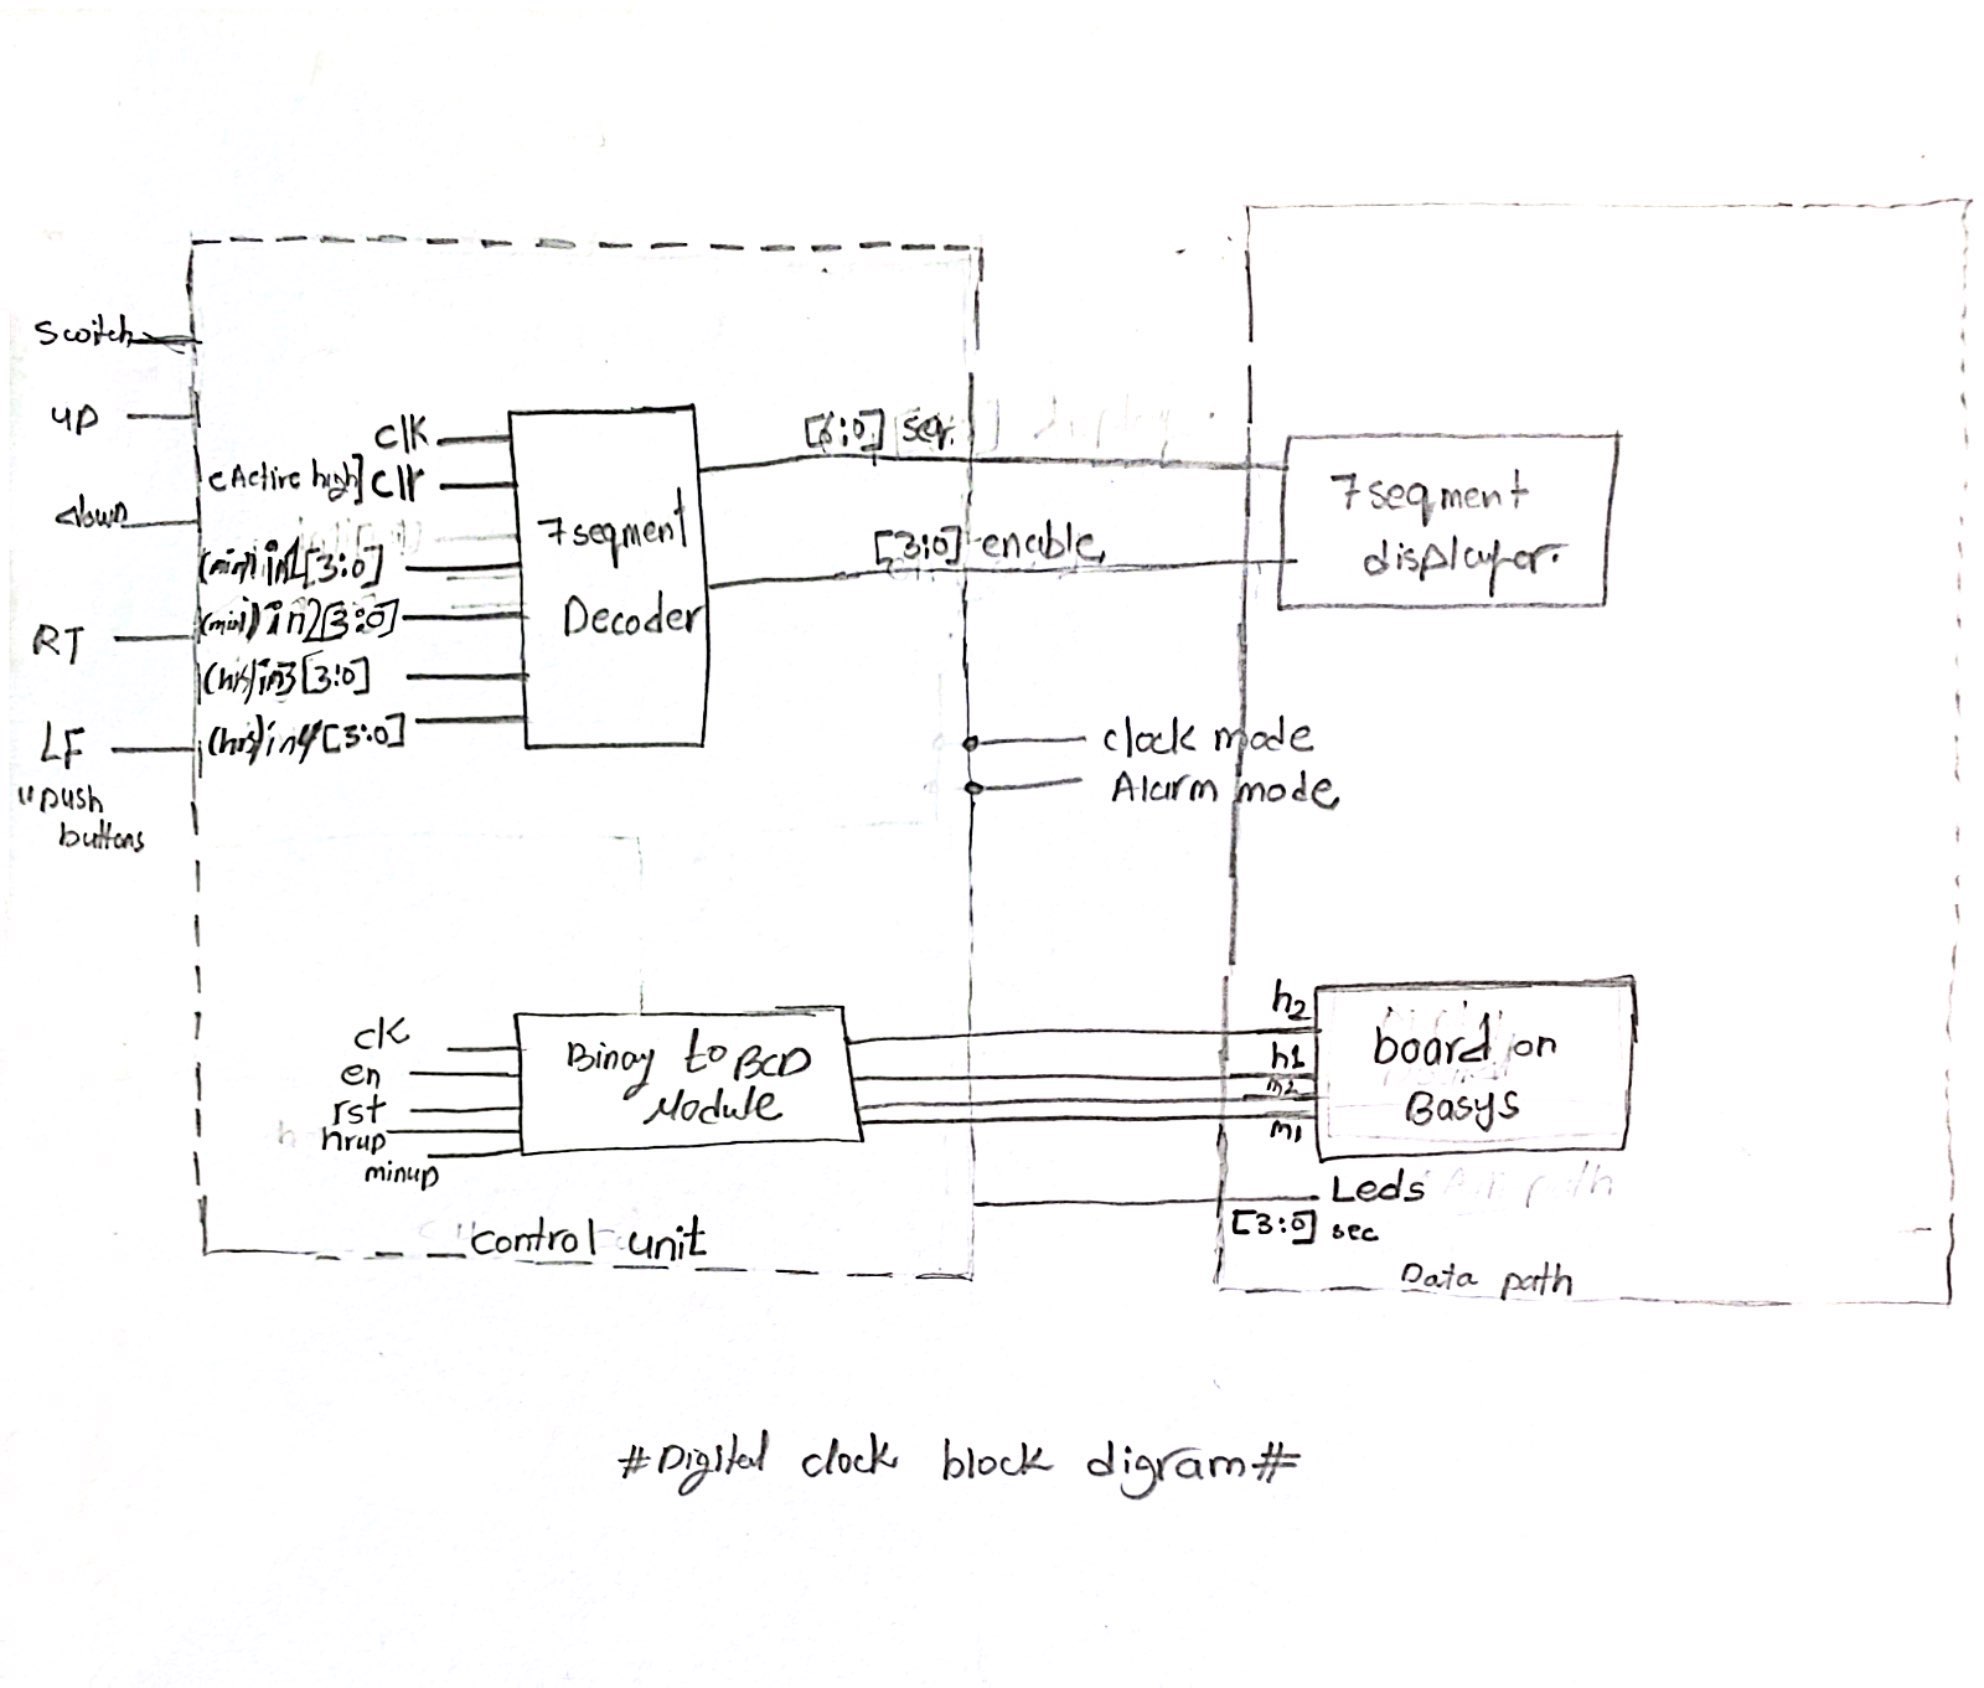 Switch
up
down
RT
LF
"push
buttons
clk
cActive high] clr
(min) in1[3:0]
(min) in2[3:0]
(hrs) in3[3:0]
(hrs) in4[3:0]
7seqment
Decoder
[6:0] seq.
[3:0] enable
7seqment
clock mode
Alarm mode
clk
en
rst
hrup
minup
Binay to BCD
Module
h2
h1
m2
m1
board on
Basys
Leds
[3:0] sec
control unit
Data path
#Digital clock block digram#